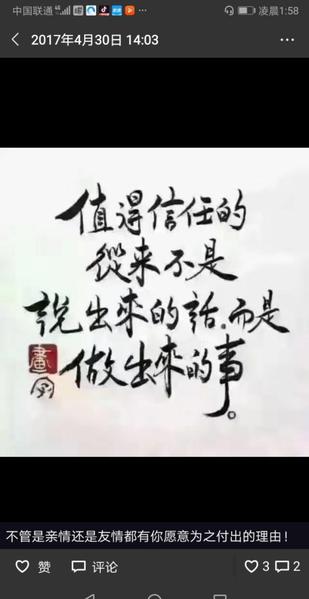 中国联通 凌晨1:58
2017年4月30日 14:03
值得信任的
從来不是
說出來的話,而是
做出來的事。
畫字
不管是亲情还是友情都有你愿意为之付出的理由!
赞 评论 3 2